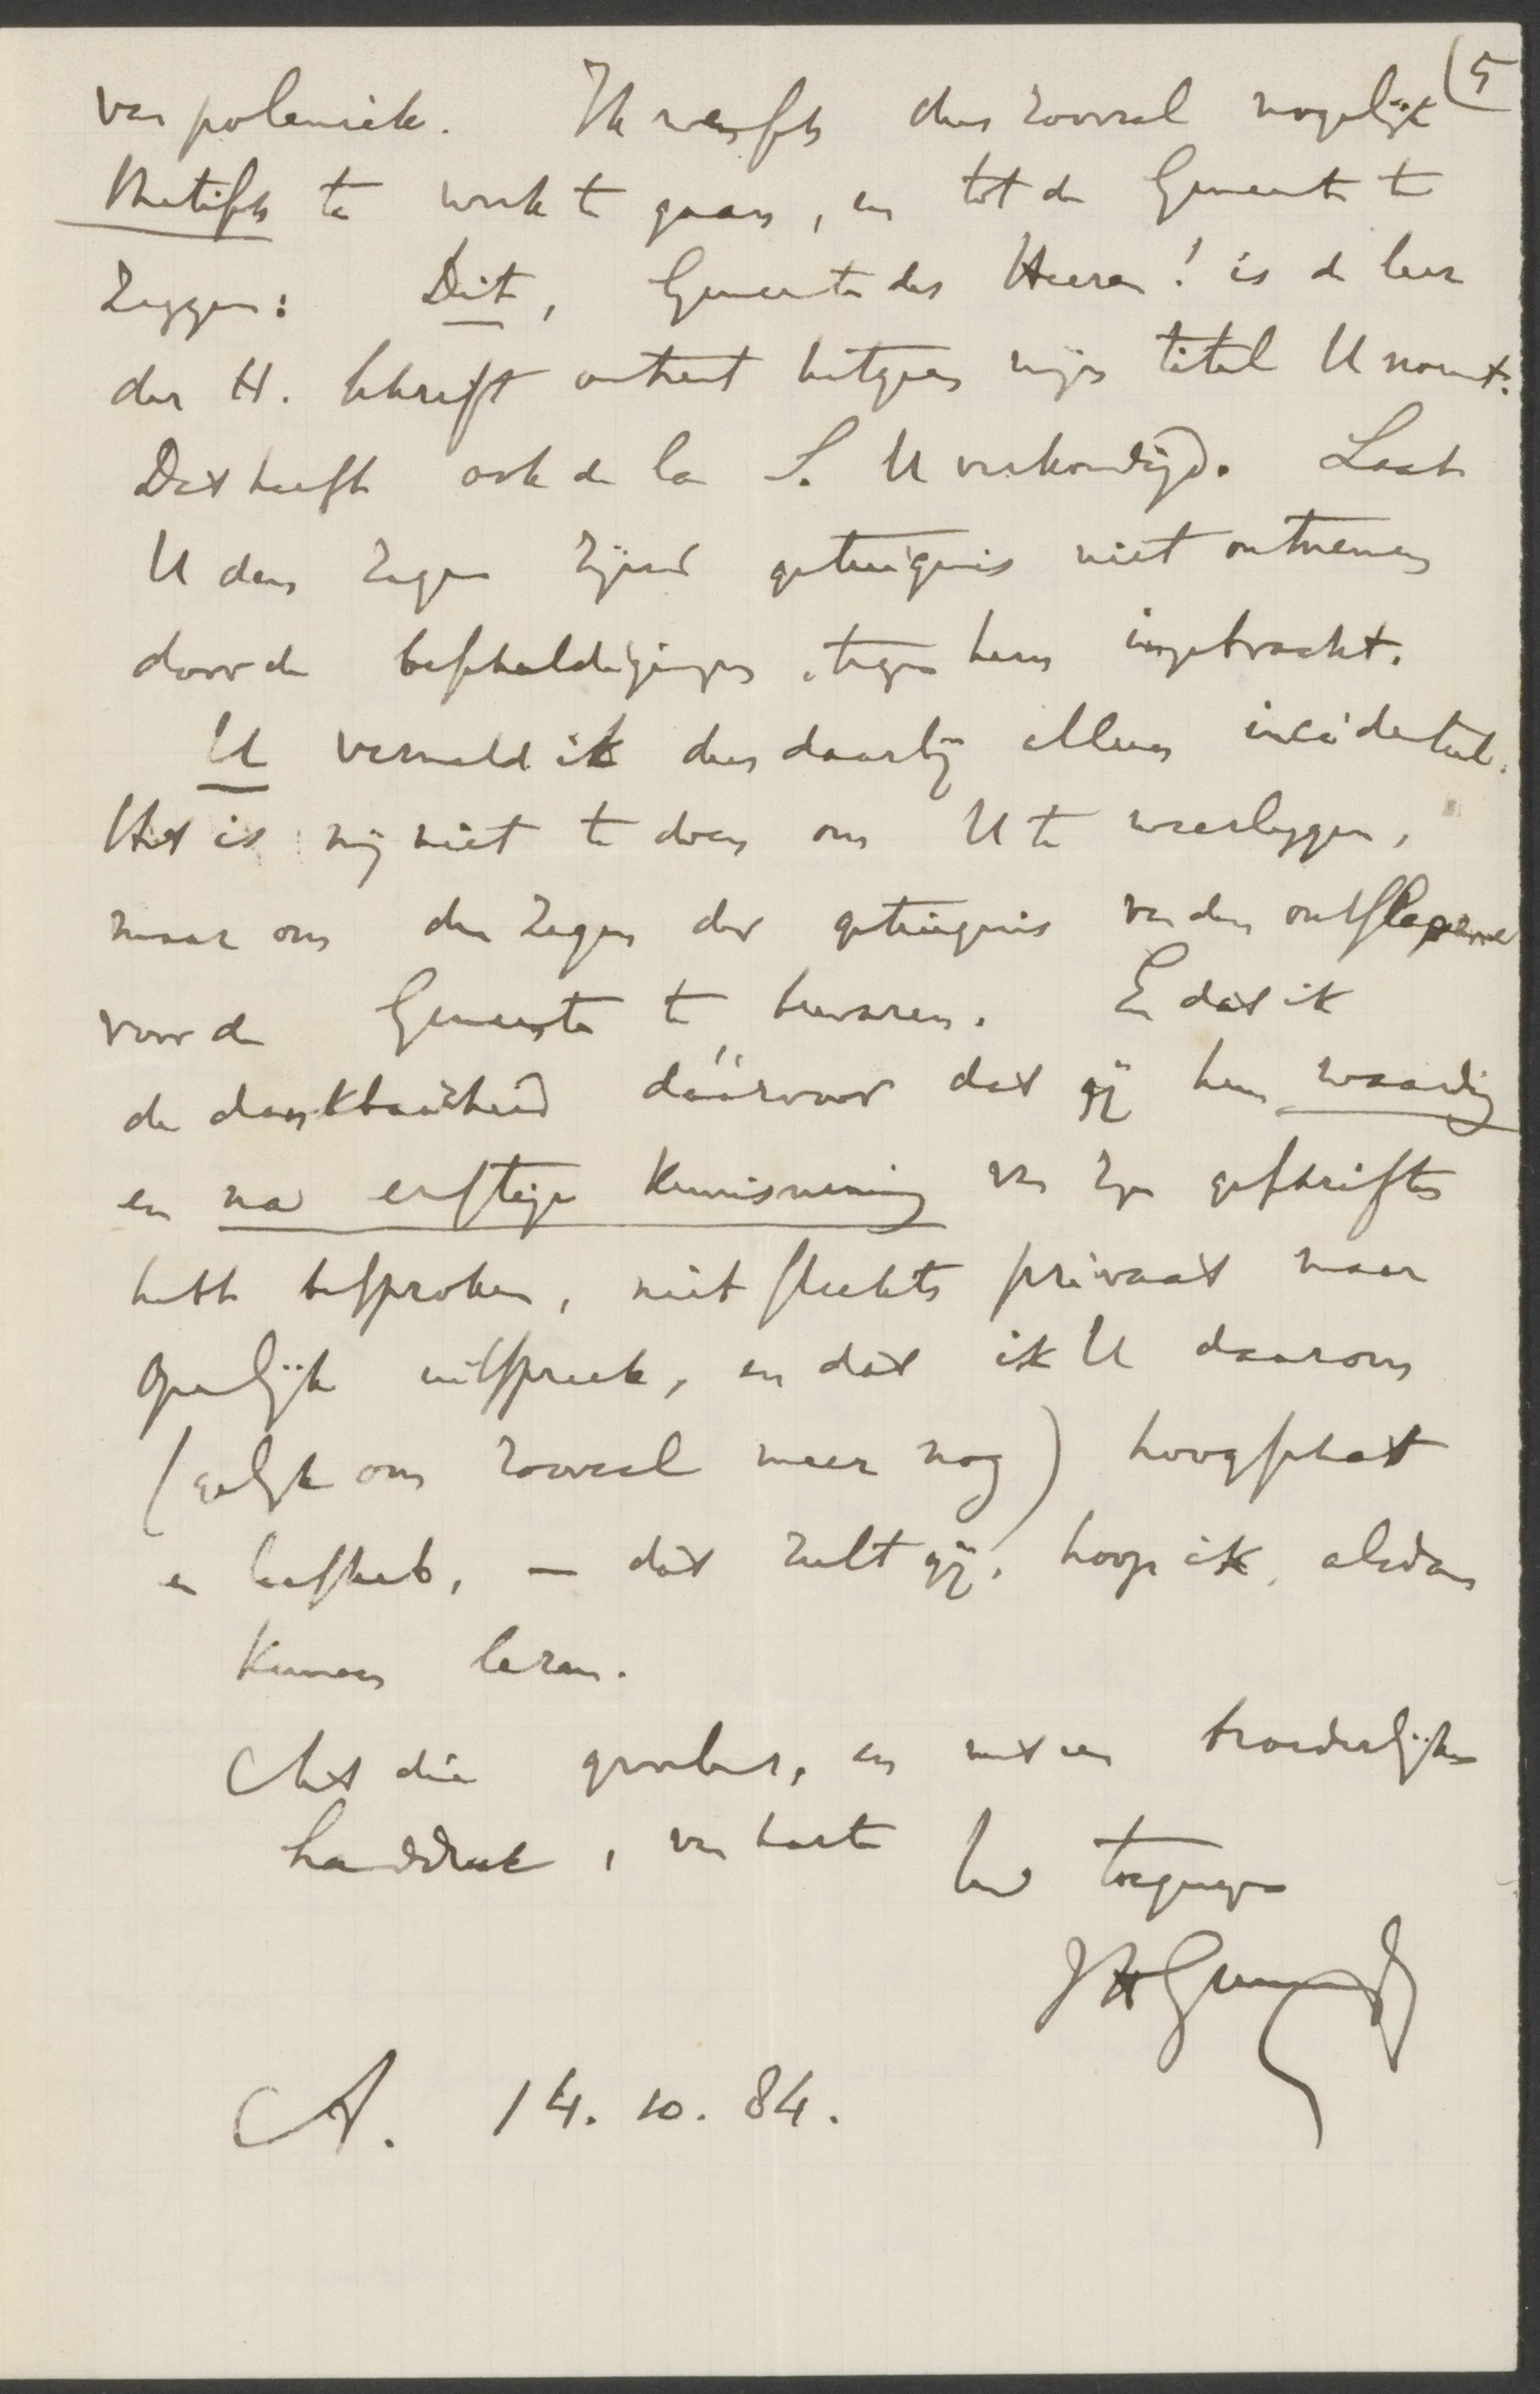 (5
van polemiek. Ik wensch dus zooveel mogelijk
thetisch te werk te gaan, en tot de Gemeente te
zeggen: Dit, Gemeente des Heeren! is de leer
der H. Schrift omtrent hetgeen mijn titel U noemt.
Dat heeft ook de la S. U verkondigd. Laat
U den zegen zijner getuigenis niet ontnemen
door de beschuldigingen, tegen hem ingebracht.
U vermeld ik dus daarbij alleen incidenteel.
Het is mij niet te doen om U te weerleggen,
maar om den zegen der getuigenis van den ontslapene
voor de Gemeente te bewaren. En dat ik
de dankbaarheid dáárvoor dat gij hem waardig
en na ernstige kennisneming van zijn geschriften
hebt besproken, niet slechts privaat maar
openlijk uitspreek, en dat ik U daarom
(gelijk om zooveel meer nog) hoogschat
en liefheb, — dat zult gij, hoop ik, alsdan
kunnen lezen.
Met die groeten, en met een broederlijken
handdruk, van harte Uw toegenegen
JHGunning
A. 14. 10. 84.